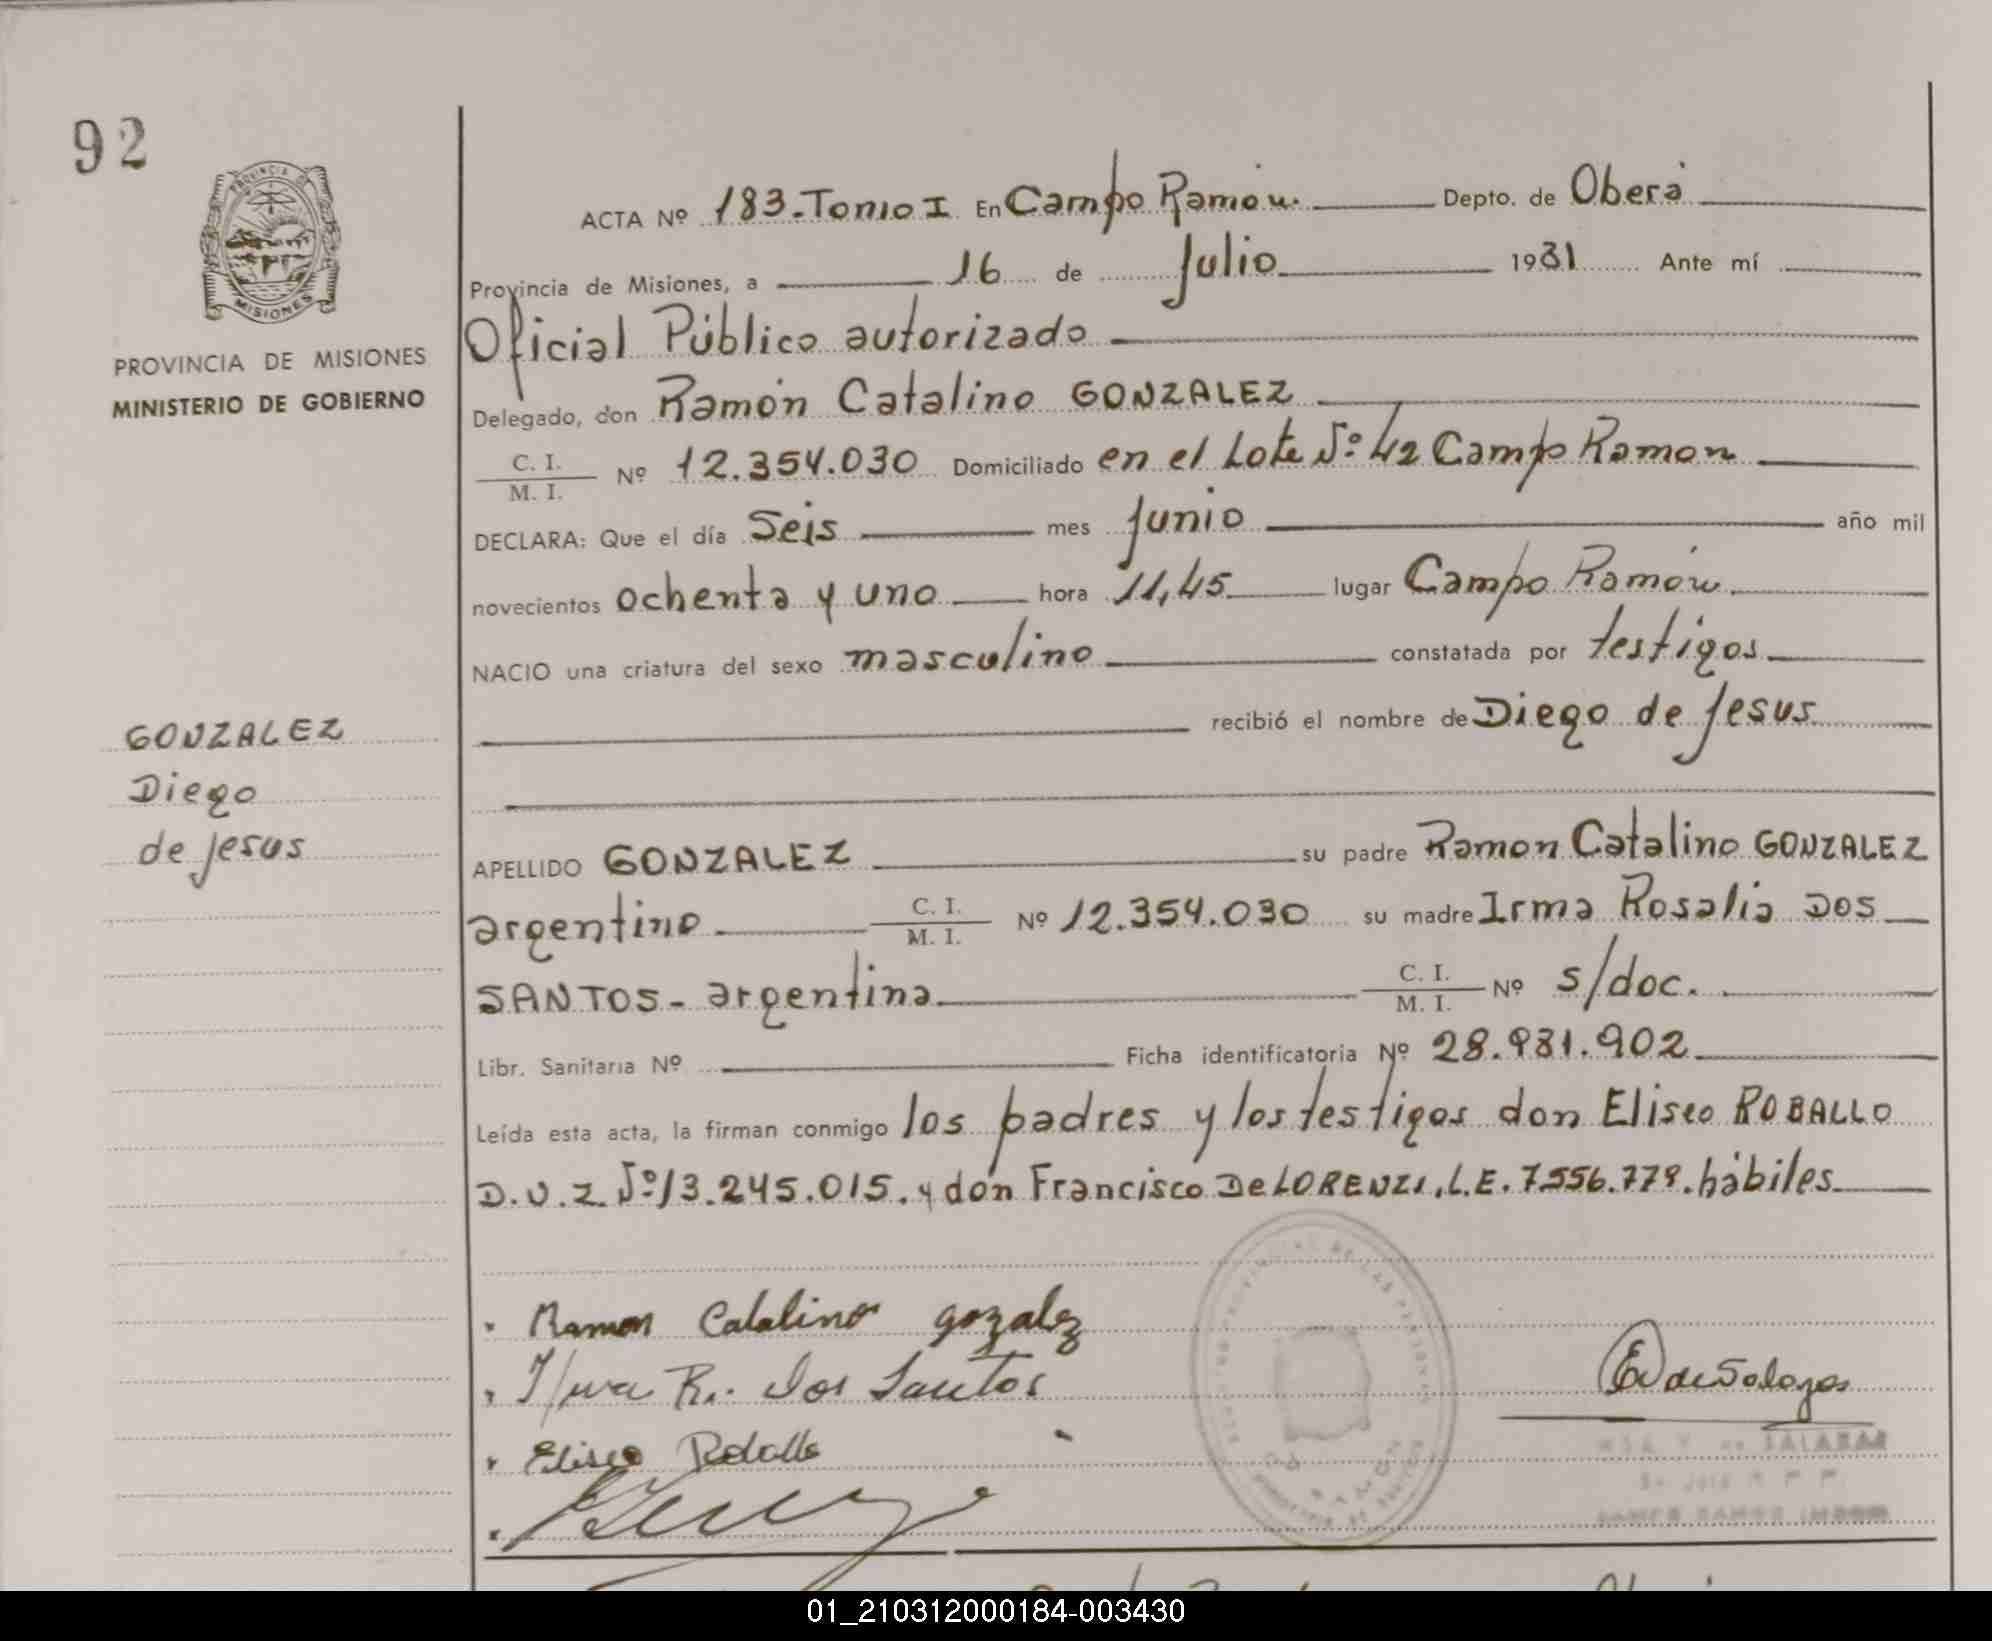 92
ACTA Nº 183.Tomo I En Campo Ramón. Depto. de Oberá
Provincia de Misiones, a 16 de Julio 1981 Ante mí
Oficial Público autorizado
PROVINCIA DE MISIONES
MINISTERIO DE GOBIERNO
Delegado, don Ramón Catalino GONZALEZ
C. I.
M. I. Nº 12.354.030 Domiciliado en el Lote Nº 42 Campo Ramon
DECLARA: Que el día Seis mes Junio año mil
novecientos ochenta y uno hora 11,45 lugar Campo Ramón
NACIO una criatura del sexo masculino constatada por testigos
recibió el nombre de Diego de Jesus
GONZALEZ
Diego
de Jesus
APELLIDO GONZALEZ su padre Ramon Catalino GONZALEZ
argentino C. I.
M. I. Nº 12.354.030 su madre Irma Rosalia DOS
SANTOS - argentina C. I.
M. I. Nº s/doc.
Libr. Sanitaria Nº Ficha identificatoria Nº 28.981.902
Leída esta acta, la firman conmigo los padres y los testigos don Eliseo ROBALLO
D.U.I. Nº 13.245.015. y don Francisco De LORENZI, L.E. 7.556.779. hábiles
Ramon Catalino gozalez
Irma R. dos Santos
Eliseo Roballo
de SALAZAR
01_210312000184-003430